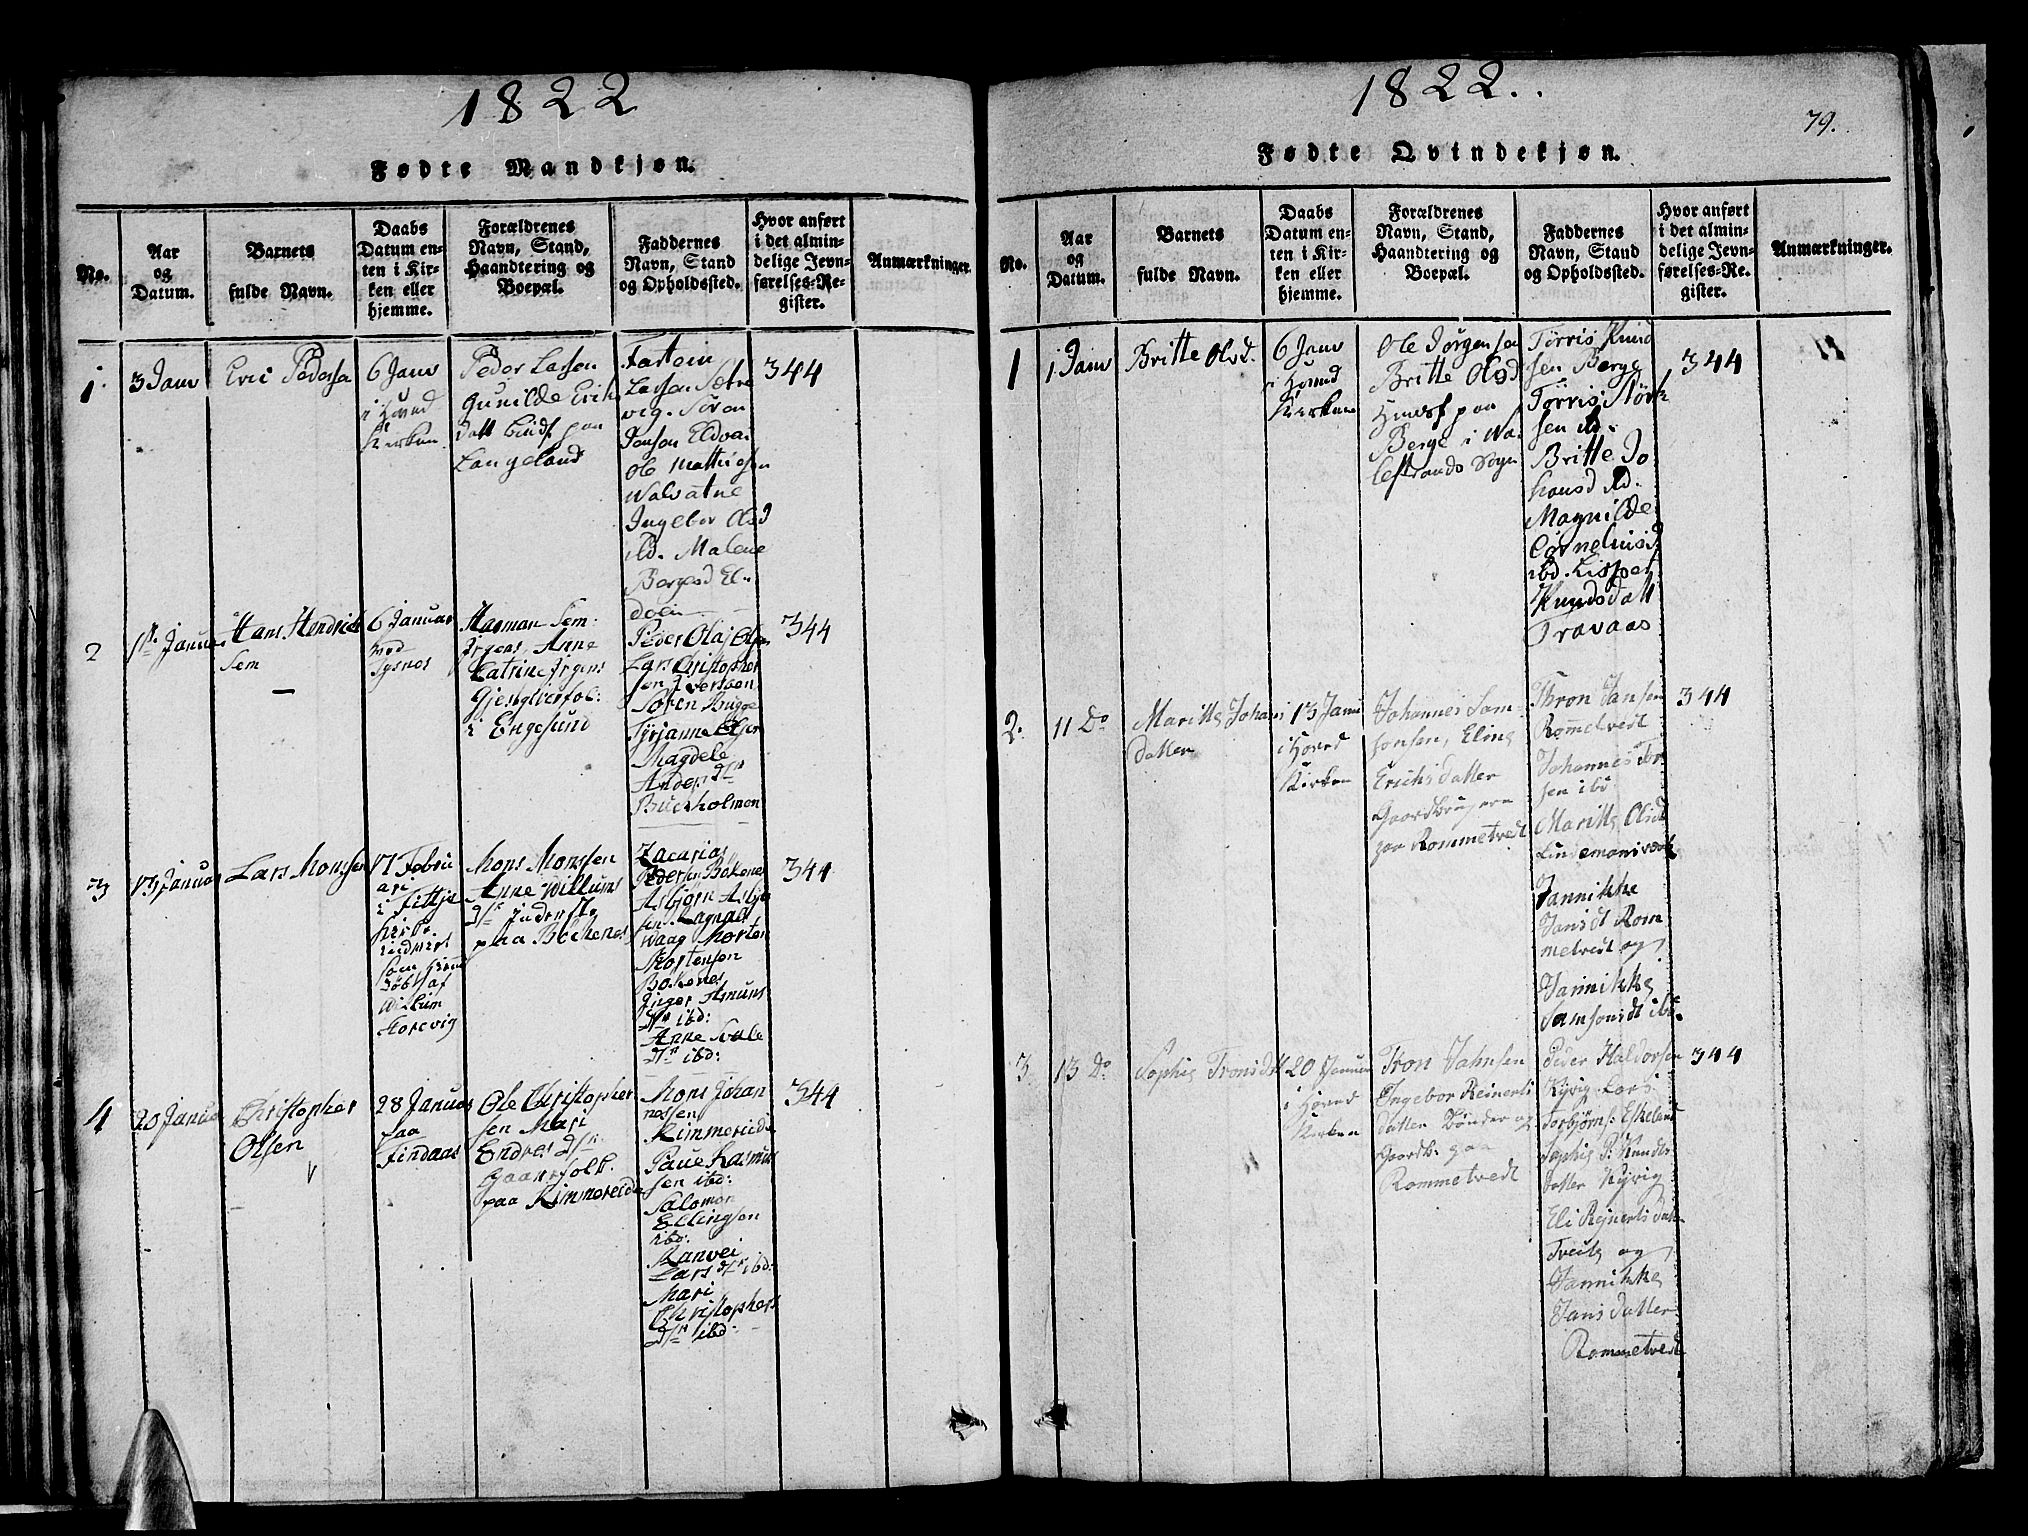 1822
Fødte Mandkjøn.
No.
Aar
og
Datum.
Barnets
fulde Navn.
Daabs
Datum en-
ten i Kir-
ken eller
hjemme.
Forældrenes
Navn, Stand,
Haandtering og
Boepæl.
Faddernes
Navn, Stand
og Opholdssted.
Hvor anført
i det almin-
delige Jevn-
førelses-Re-
gister.
Anmærkninger.
1.
3 Janv
Eric Peders
6 Janv
i Hoved
Kirken
Peder Larsen
Gunilde Erik
datt paa
Langeland
Larsen
vig. Søren
Jansen Eldva
Ole Mathiesen
Walvatne
Ingebor Olsd
ibd. Malene
Bergesd El-
døen
344
2
Januar
Hans Hendrick
Sem
6 Januar
ved
Tysnes
Harman Sem
Irgens, Anne
Catrine Irgens
Gjestgiverfol:
i Engesund
Peder Olaj Olsen
Lars Cristopher
sen Iversøen
Søren Bugge
Magdele
Anders dtr
Buckholmen
344
3
13 Januar
Lars Monssen
17 Febru
ar
i Fittje
kirke
som hjem
døbt af
Willum
Storevig
Mons Monssen
Anne Willums
dtr
paa Böckenes
Zacarias
Pedersen Bøkene
Asbjørn Asbjø
sen
Waag Morten
Mortensen
Bøkenes
Inger Amuns
dtr ibd:
Anne
dtr ibd:
344
4
20 Januar
Christopher
Olsen
28 Januar
paa
Findaas
Ole Christopher
sen Mari
Endres dtr
Gaardfolk
paa Rimmereide
Mons Johan
nessen
Rimmereide
Paue Rasmus
sen ibd:
Salomon
Ellingsen
ibd:
Ranvei
Lars dtr ibd:
Mari
Christophers
dtr ibd:
344
1822.
79.
Fødte Qvindekjøn.
No.
Aar
og
Datum.
Barnets
fulde Navn.
Daabs
Datum en-
ten i Kir-
ken eller
hjemme.
Forældrenes
Navn, Stand,
Haandtering og
Boepæl.
Faddernes
Navn, Stand
og Opholdssted.
Hvor anført
i det almin-
delige Jevn-
førelses-Re-
gister.
Anmærkninger.
1
1 Janv
Britte Olsd.
6 Janv
i Hoved
Kirken
Ole Jørgensen
Britte Olsd
paa
Berge i Wa
lestrands Sogn
Tørris Knud
sen Berge
Tørris Størk
sen ibd.
Britte Jo
hansd ibd.
Magnilde
Corneliusd
ibd. Lisper
Knudsdatt
Travaas
344
2.
11 Do
Maritte Johans
Datter
13 Janu
i Hoved
Kirken
Johannes Sam-
sonsen, Eling
Erichsdatter
Gaardbrugere
paa Rommetvedt
Thron Jansen
Rommetvedt
Johannes
sen ibd
Maritte Olsdt
Lindemansværk
Jannikke
Jansdt Rom
metvedt og
Jannikke
Samsonsdt ibd.
344
3.
13 Do
Sophie Tronsdtt
20 Januar
i Hoved
Kirken
Tron Jahnsen
Ingebor Reinerts
datter Bønder og
Gaardb. paa
Rommetvedt
Peder Haldorsen
Kyvig Lars
Torbjørns: Eskeland
Sophie P. Knuds
datter Kyvig
Eli Rejnertsdat-
Tveite og
Jannikke
Jansdatter
Rommetvedt
344